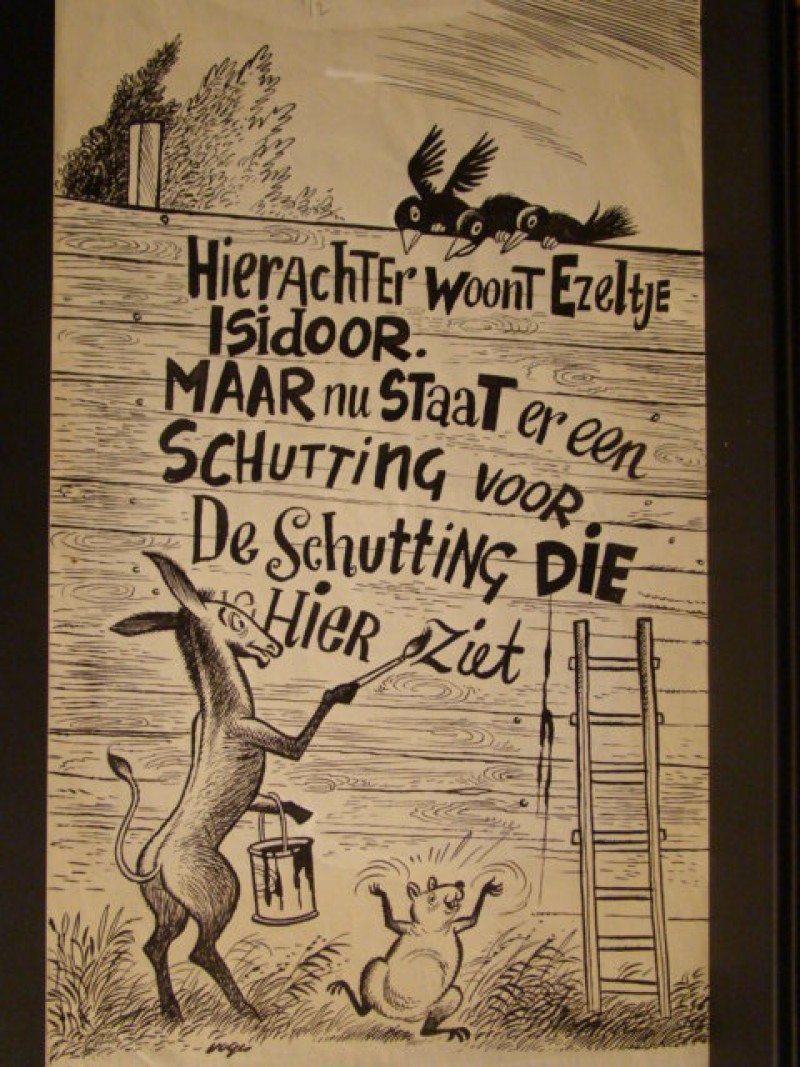 1/2
HierAchTEr woont Ezeltje
ISidooR.
MAAR nu STaaT er een
SCHUTTiNG VOOR
De SchuttiNG DiE
u Hier Ziet